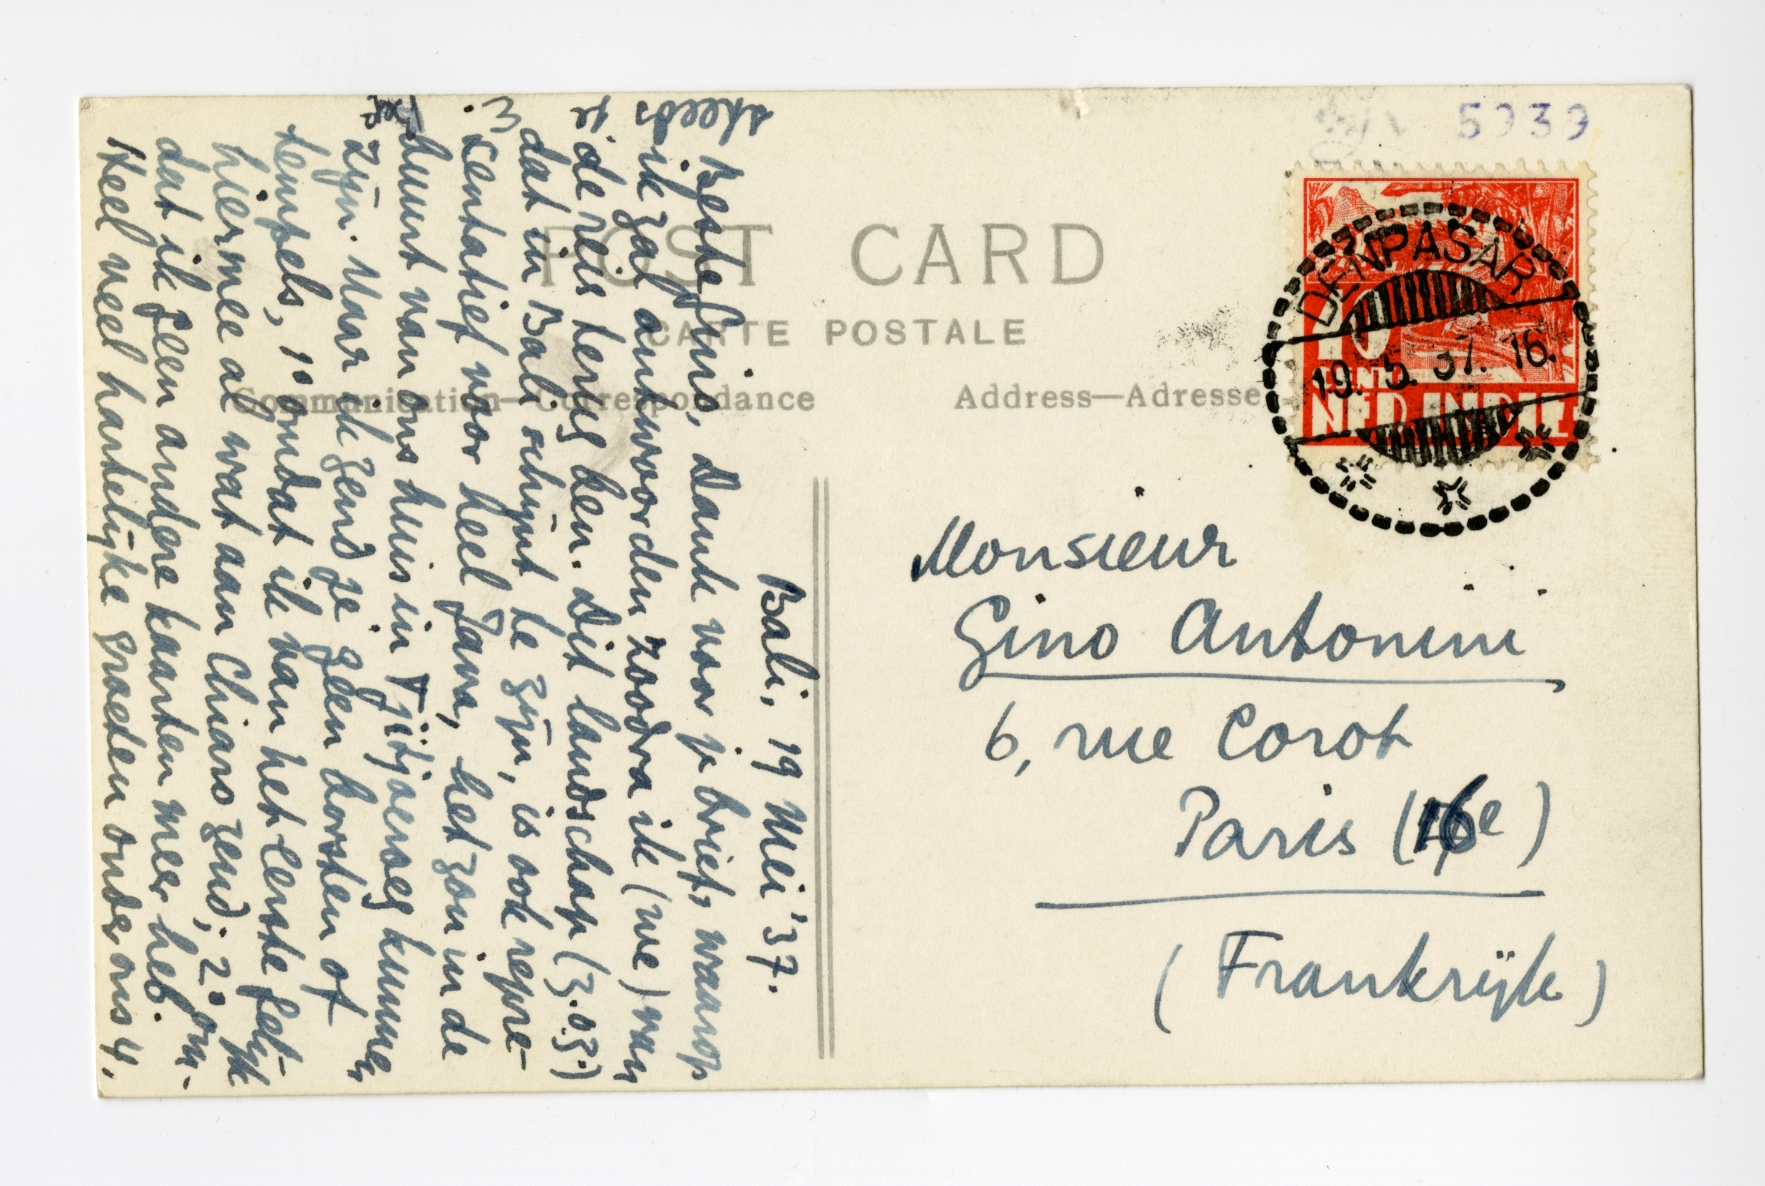 5939
POST CARD
CARTE POSTALE
Communication—Correspondance
Address—Adresse
DENPASAR
19. 5. 37. 16.
10
CENT
NED. INDIË
Bali, 19 Mei '37.
Beste Gino, Dank voor je brief, waarop
ik zal antwoorden zoodra ik (we) van
de reis terug ben. Dit landschap (z.o.z.)
dat in Bali schijnt te zijn, is ook repre-
sentatief voor heel Java, het zou in de
buurt van ons huis in Tjitjoeroeg kunnen
zijn. Maar ik zend je geen borsten of
tempels, 1° omdat ik van het eerste
hiermee al wat aan Chiaro zend; 2° om-
dat ik geen andere kaarten meer heb.
Heel veel hartelijke groeten onder ons 4,
steeds
je
Monsieur
Gino Antonini
6, rue Corot
Paris (16e)
(Frankrijk)